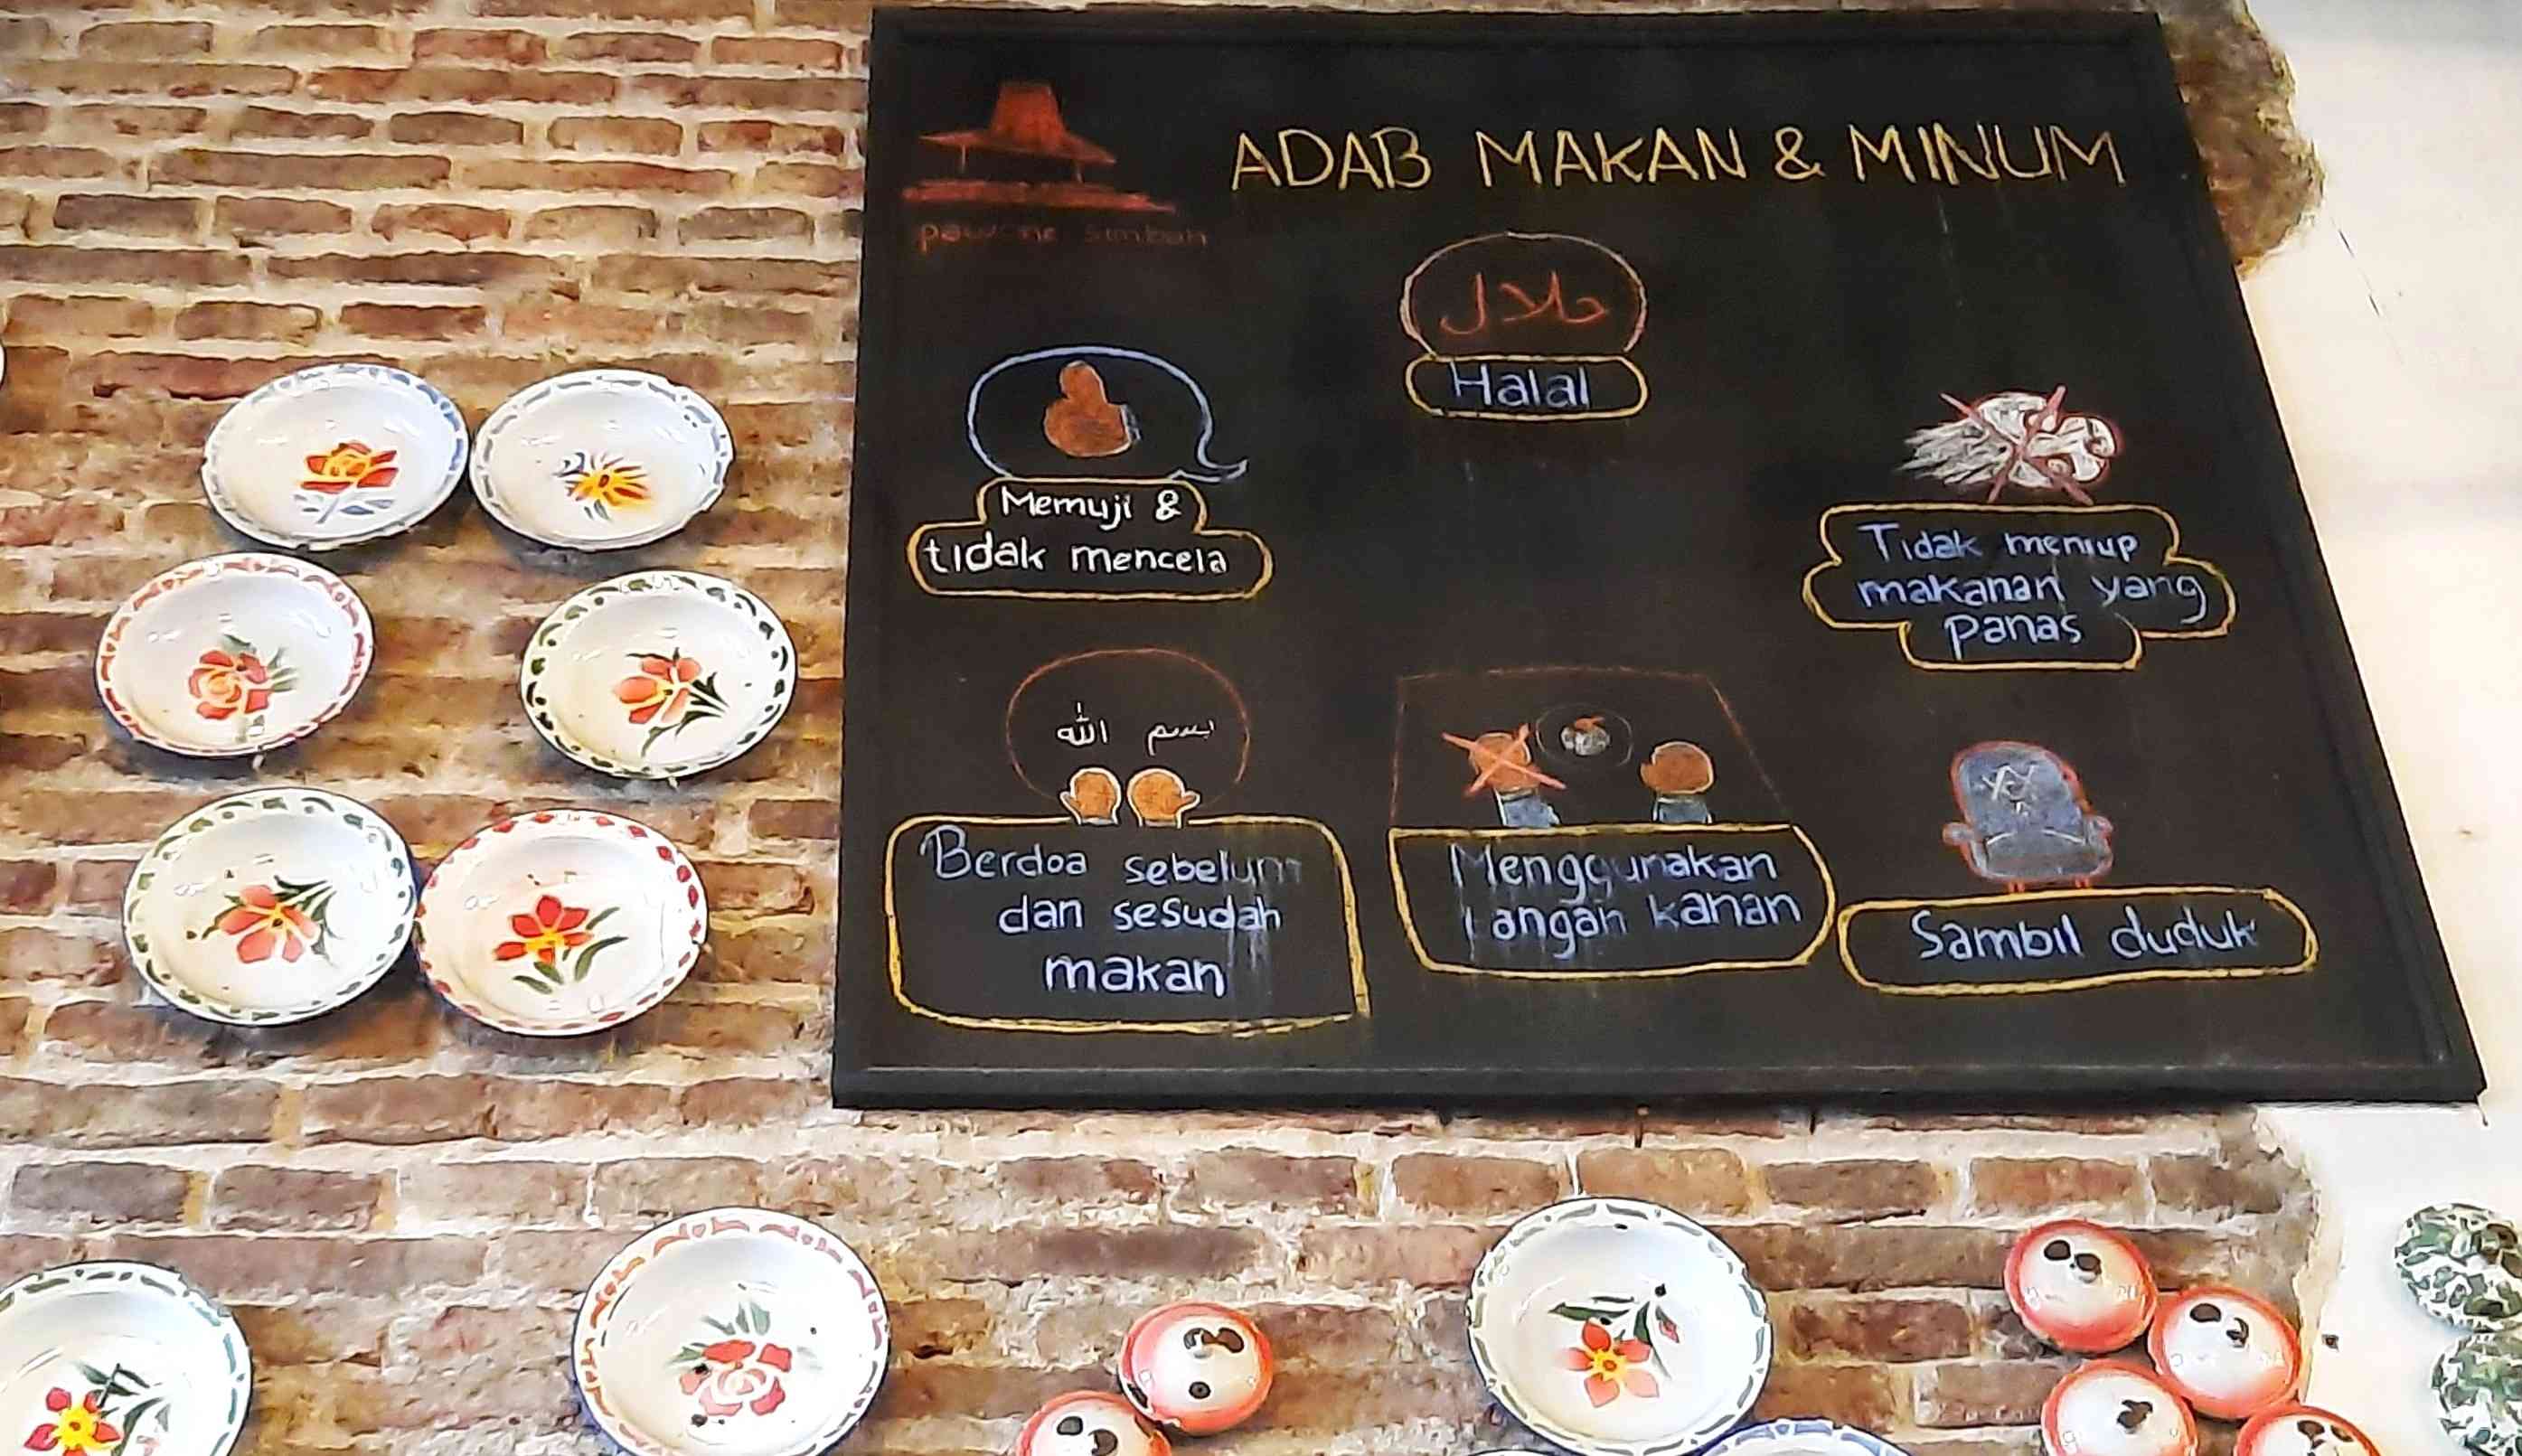 ADAB MAKAN & MINUM
pawone simbah
حلال
Halal
Memuji &
tidak mencela
Tidak meniup
makanan yang
panas
بسم الله
Berdoa sebelum
dan sesudah
makan
Menggunakan
tangan kanan
Sambil duduk